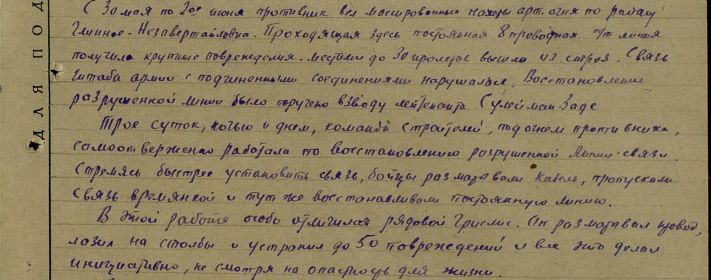 С 30 мая по 2ое июня противник вел массированные налеты артогня по району
Глиное - Незавертайловка. Проходящая здесь постоянная 8 проводная т/т линия
получила крупные повреждения. местами до 30 пролетов вышли из строя. Связь
штаба армии с подчиненными соединениями нарушалась. Восстановление
разрушенной линии было поручено взводу лейтенанта Сулейман-Заде
Трое суток, ночью и днем, команда строителей, под огнем противника,
самоотверженно работала по восстановлению разрушенной линии связи.
Стремясь быстрее установить связь, бойцы разматывали кабель, пропускали
связь времянкой и тут же восстанавливали постоянную линию.
В этой работе особо отличился рядовой Он разматывал провод,
лазил на столбы и устранил до 50 повреждений и все это делал
инициативно, не смотря на опасность для жизни.
ДЛЯ ПОД